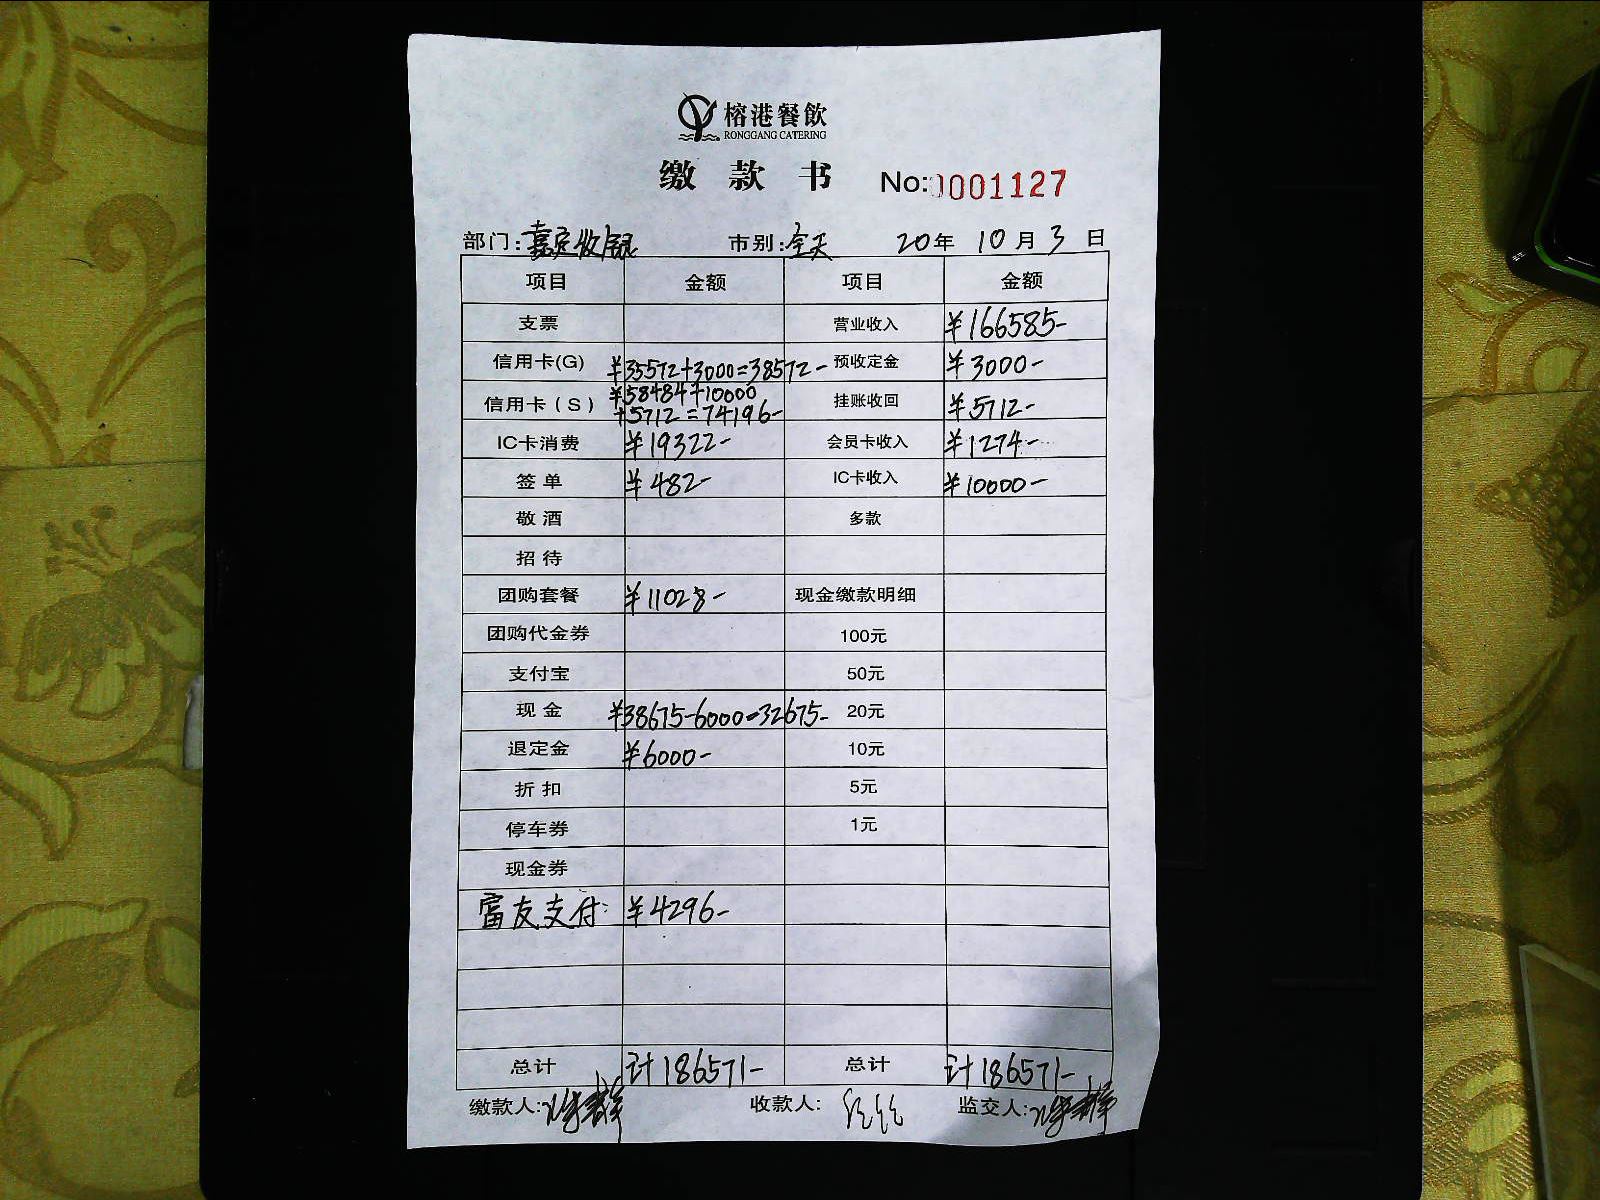 榕港餐飲
RONGGANG CATERING
缴款书 No:0001127
部门:嘉定收银 市别:全天 20年10月3日
项目 金额 项目 金额
支票 营业收入 ¥166585-
信用卡(G) ¥35572+3000=38572- 预收定金 ¥3000-
信用卡(S) ¥58484+10000
+5712=74196- 挂账收回 ¥5712-
IC卡消费 ¥19322- 会员卡收入 ¥1274-
签单 ¥482- IC卡收入 ¥10000-
敬酒 多款
招待
团购套餐 ¥11028- 现金缴款明细
团购代金券 100元
支付宝 50元
现金 ¥38675-6000=32675- 20元
退定金 ¥6000- 10元
折扣 5元
停车券 1元
现金券
富友支付: ¥4296-
总计 计186571- 总计 计186571-
缴款人: 收款人: 监交人: